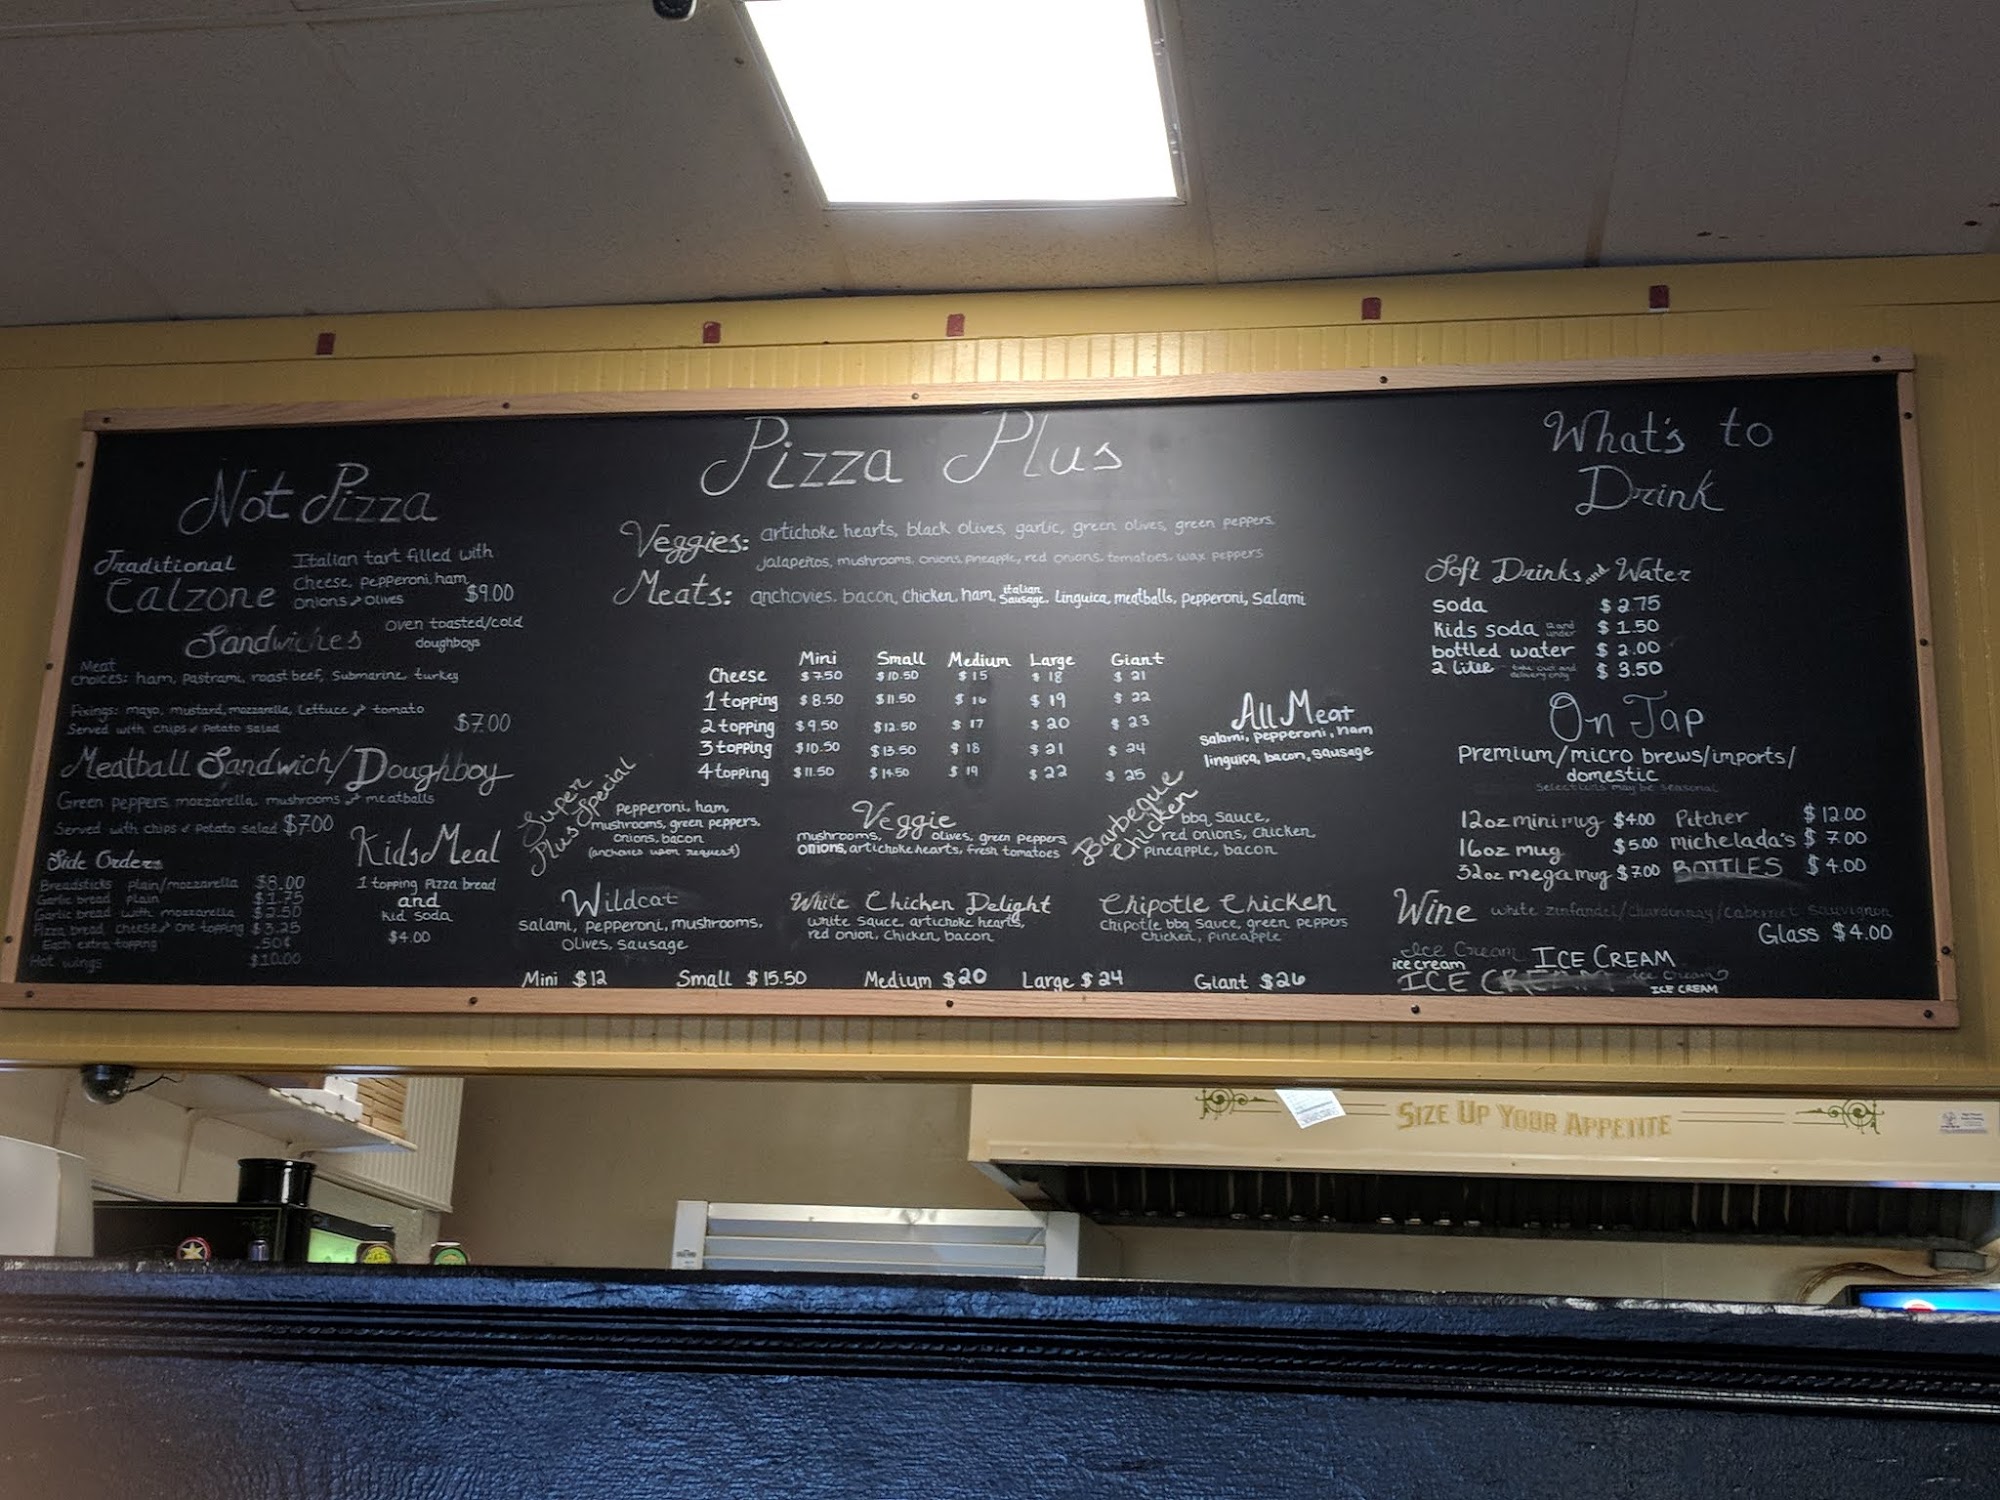 Not Pizza
Traditional
Calzone
Italian tart filled with
Cheese, pepperoni, ham,
onions & olives $9.00
Sandwiches
Oven toasted/cold
doughboys
Meat
Choices: ham, Pastrami, roast beef, Submarine, turkey
Fixings: mayo, mustard, mozzarella, Lettuce & tomato
Served with chips & Potato Salad $7.00
Meatball Sandwich/Doughboy
Green peppers, mozzarella, mushrooms & meatballs
Served with chips & Potato Salad $7.00
Side Orders
Breadsticks plain/mozzarella $8.00
Garlic bread plain $1.75
Garlic bread with mozzarella $2.50
Pizza bread, cheese & one topping $3.25
Each extra topping .50¢
Hot wings $10.00
Kids Meal
1 topping Pizza bread
and
kid soda
$4.00
Pizza Plus
Veggies: artichoke hearts, black olives, garlic, green olives, green peppers,
jalapeños, mushrooms, onions, pineapple, red onions, tomatoes, wax peppers
Meats: anchovies, bacon, chicken, ham, Italian Sausage, Linguica, meatballs, pepperoni, Salami
Mini Small Medium Large Giant
Cheese $7.50 $10.50 $15 $18 $21
1 topping $8.50 $11.50 $16 $19 $22
2 topping $9.50 $12.50 $17 $20 $23
3 topping $10.50 $13.50 $18 $21 $24
4 topping $11.50 $14.50 $19 $22 $25
All Meat
Salami, pepperoni, ham
linguiça, bacon, sausage
Super
Plus Special
Pepperoni, ham
mushrooms, green peppers,
onions, bacon
(anchovies upon request)
Veggie
mushrooms, olives, green peppers
onions, artichoke hearts, fresh tomatoes
Barbeque
Chicken
bbq sauce,
red onions, chicken,
pineapple, bacon
Wildcat
Salami, pepperoni, mushrooms,
Olives, sausage
White Chicken Delight
White Sauce, artichoke hearts,
red onion, chicken, bacon
Chipotle Chicken
Chipotle bbq sauce, green peppers
Chicken, pineapple
Mini $12 Small $15.50 Medium $20 Large $24 Giant $26
What's to
Drink
Soft Drinks and Water
soda $2.75
kids soda 12 and under $1.50
bottled water $2.00
2 liter take out and delivery only $3.50
On Tap
Premium/micro brews/imports/
domestic
Selections may be seasonal
12oz mini mug $4.00 Pitcher $12.00
16oz mug $5.00 michelada's $7.00
32oz mega mug $7.00 BOTTLES $4.00
Wine White zinfandel/Chardonnay/Cabernet Sauvignon
Glass $4.00
Ice Cream ICE CREAM
ice cream
ICE CREAM Ice Cream
ICE CREAM
SIZE UP YOUR APPETITE